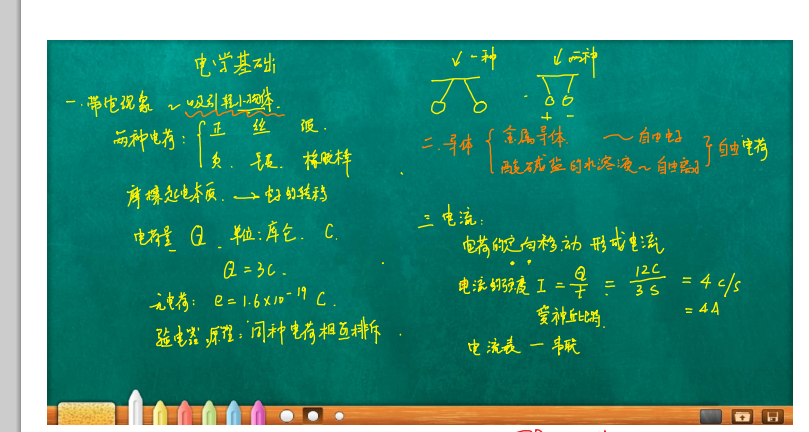 电学基础
一.带电现象 ~ 吸引轻小物体.
两种电荷: { 正 丝 玻.
负. 毛皮. 橡胶棒
摩擦起电本质. → 电子的转移
电荷量 Q 单位:库仑. C.
Q = 3C.
元电荷: e = 1.6×10⁻¹⁹ C.
验电器.原理: 同种电荷相互排斥.
一种
两种
+ -
二.导体 { 金属导体. ~ 自由电子
酸碱盐的水溶液 ~ 自由离子 } 自由电荷
三 电流:
电荷的定向移动 形成电流
电流的强度 I = Q/t = 12C/3S = 4 c/s
= 4A
电流表 一 串联